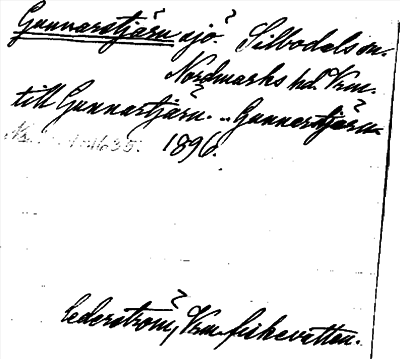 Gunnarstjärn sjö. Silbodals sn.
Nordmarks hd. Vrm.
till Gunnarstjärn. .. Gunnerstjärn
1896.
Cederström, Vrm fiskevatten.